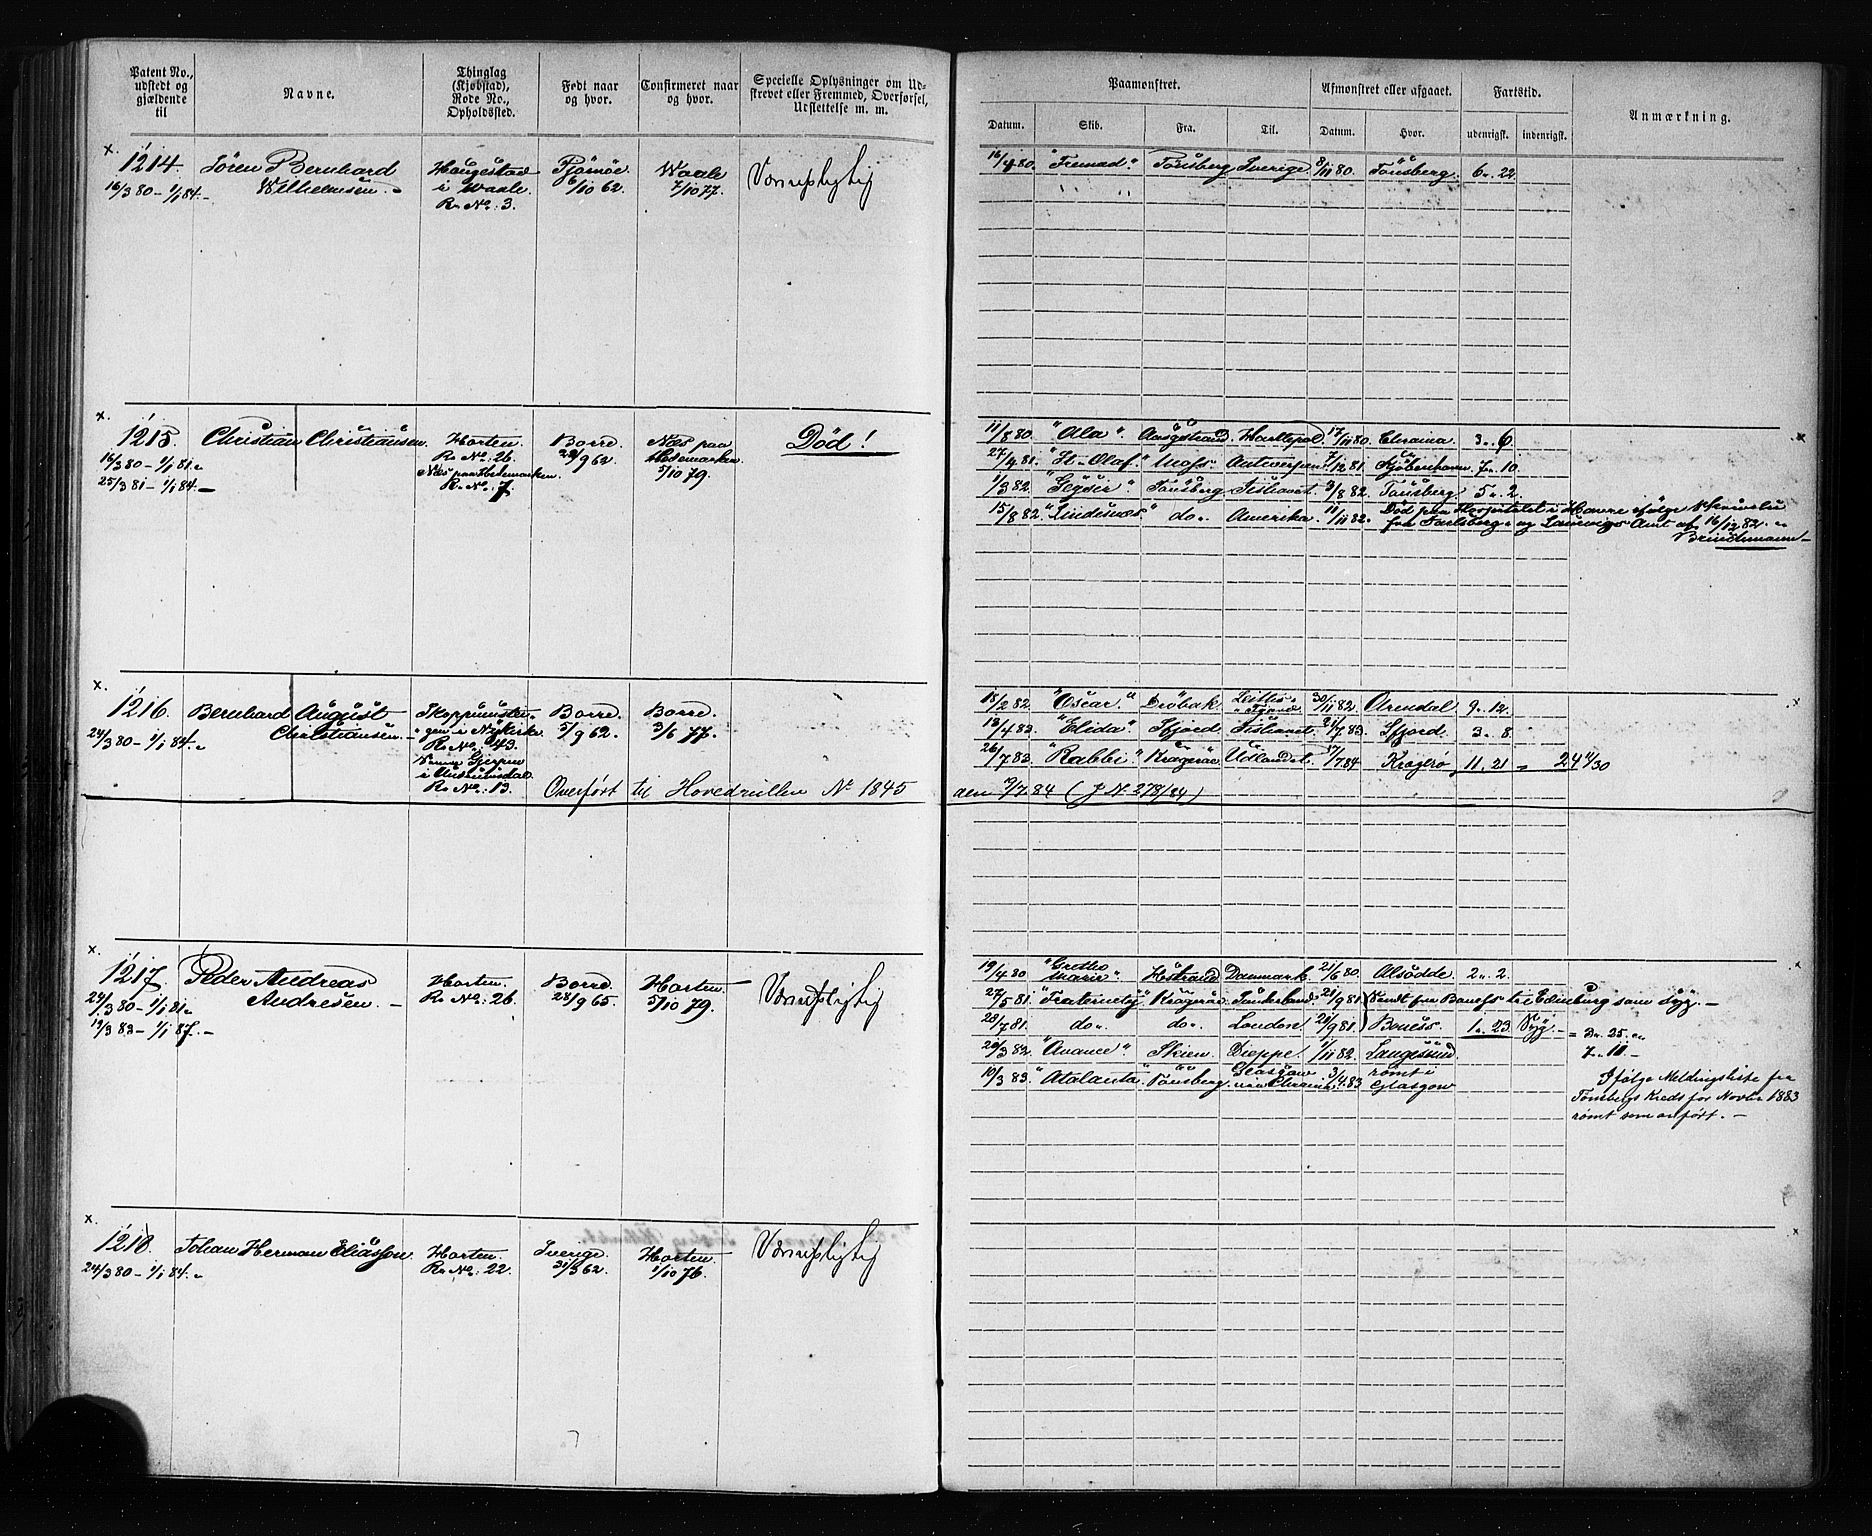 Patent No., udstedt og gjældende til
Navne.
Thinglag (Kjøbstad), Rode No., Opholdssted.
Født naar og hvor.
Confirmeret naar og hvor.
Specielle Oplysninger om Udskrevet eller Fremmed, Overførsel, Udslettelse m. m.
Paamønstret.
Afmønstret eller afgaaet.
Fartstid.
Anmærkning.
Datum.
Skib.
Fra.
Til.
Datum.
Hvor.
udenrigsk.
indenrigsk.
x.
1214.
16/3 80 – 1/1 84. –
Søren Bernhard
Wilhelmsen. –
Haugestad
i Waale.
R. No: 3.
Fjösnöe.
6/10 62.
Waale
7/10 77.
Værnepligtig
16/4 80. "Fremad". Tönsberg Sverige. 8/11 80. Tönsberg. 6 „ 22.
x.
1215.
16/3 80 – 1/1 81 „
25/3 81 – 1/1 84. –
Christian Christiansen.
Horten.
R. No: 26.
Næs paa Hedemarken.
R. No: 7.
Borre.
23/9 62.
Næs paa
Hedemarken
5/10 79.
Død!
11/8 80. "Ala". Aasgstrand. Hartlepol. 17/11 80. Chrania. 3 „ 6.
27/4 81. "St. Olaf". Moss. Antwerpen. 7/12 81. Kjöbenhavn. 7 „ 10.
1/3 82. "Geysir". Tönsberg Ishavet. 3/8 82. Tönsberg. 5 „ 2.
15/8 82. "Lindesnæs." do. Amerika. 11/11 82. Död paa Hospitalet i Havre ifølge Skrivelse
fra Jarlsberg og Laurvigs Amt af 16/12 82. „
Brinchmann –
x.
1216.
24/3 80 – 1/1 84. „
Bernhard August
Christiansen. –
Skoppumsten-
gen i Nykirke
R. No: 43.
Gjerpen
R. No: 13.
Borre.
5/9 62.
Borre.
3/6 77.
Overført til Hovedrullen No 1845
den 9/7 84 (J. N. 278/84)
18/2 82. "Oscar." Dröbak. 30/11 82. Arendal. 9 „ 12.
13/4 83. "Elida" Sfjord Ishavet. 21/7 83. Sfjord. 3 „ 8.
26/7 83. "Rabbi" Kragerö Udlandet. 17/7 84 Kragerø 11. 21 = 24 4/30
x.
1217.
24/3 80 – 1/1 81 „
19/3 83 – 1/1 87. –
Peder Andreas
Andresen. –
Horten.
R. No: 26.
Borre.
28/9 65.
Horten.
5/10 79.
Værnepligtig
19/4 80. "Grethe
Marie". Hstrand Danmark. 21/6 80. Alsödde. 2 „ 2.
27/5 81. "Fraternety" Kragerö. Sunderland. 21/9 81. Sendt fra Boness til Edinburg som syg. –
28/7 81. do. do. London. 21/9 81. Boness. 1 „ 23. Syg. – = 3 „ 25. „
29/3 82. "Avance". Skien. Dieppe. 1/11 82. Langesund. 7 „ 10. –
10/3 83. "Atalanta". Tönsberg. Glasgow 3/4 83. rømt i
Glasgow
Ifølge Meldingsliste fra
Tønsbergs Kreds for Novbr 1883
rømt som anført. –
x.
1218.
24/3 80 – 1/1 84. „
Johan Herman Eliasson.
Horten.
R. No: 22.
Sverige.
31/3 62.
Horten.
1/10 76.
Værnepligtig